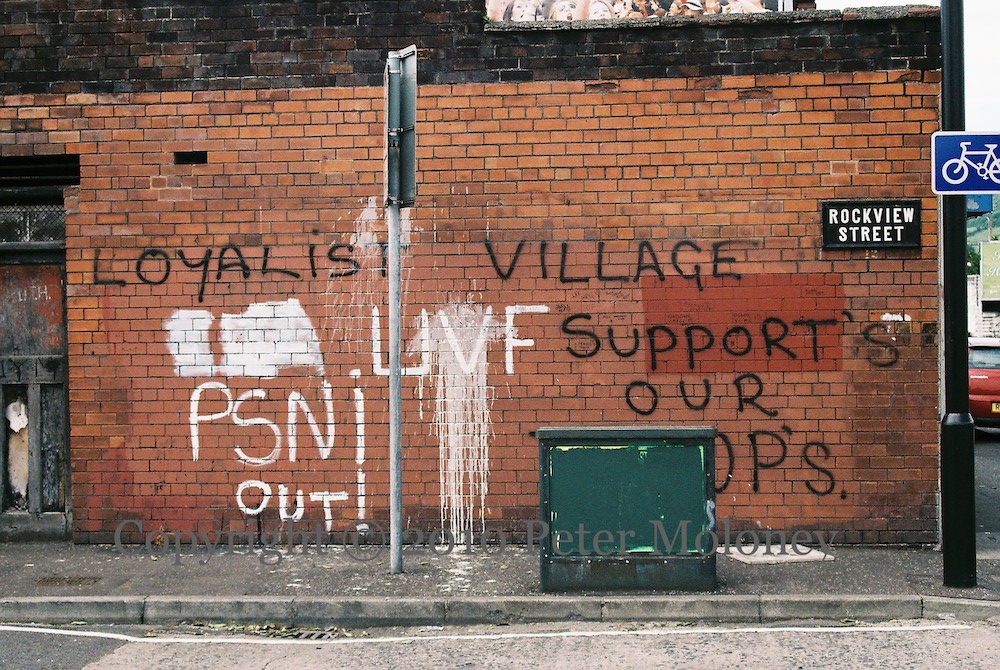 ROCKVIEW
STREET
LOYALIST VILLAGE
UVF SUPPORT'S
OUR
PSNI
OUT!
Copyright © 2010 Peter Moloney